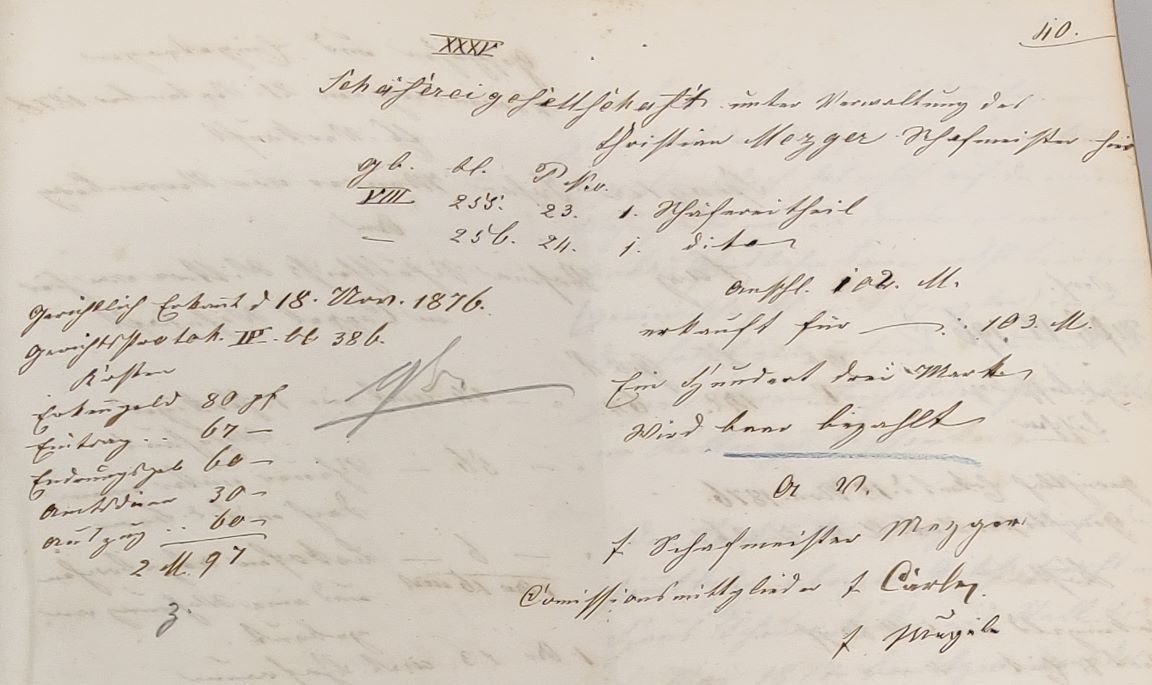 40.
XXXV
Schäfereigesellschaft unter Verwaltung des
Christian Mezger Schafmeister hier
Gb. bl. P No.
VIII 255. 23. 1. Schäfereitheil
— 256. 24. 1. dito
Anschl. 102. M.
erkauft für — : 103. M.
Ein Hundert drei Mark
Wird baar bezahlt
A V.
t. Schafmeister Mezger
Comissionsmitglieder t.
t.
Gerichtlich Erkannt d 18. Nov. 1876.
Gerichtsprotok. III. bl 386.
Kosten
Erkenngeld 80 pf
Eintrag .. 67 —
60 —
Amtsdiener 30 —
Auszug .. 60 —
2 M. 97
gb.
z.